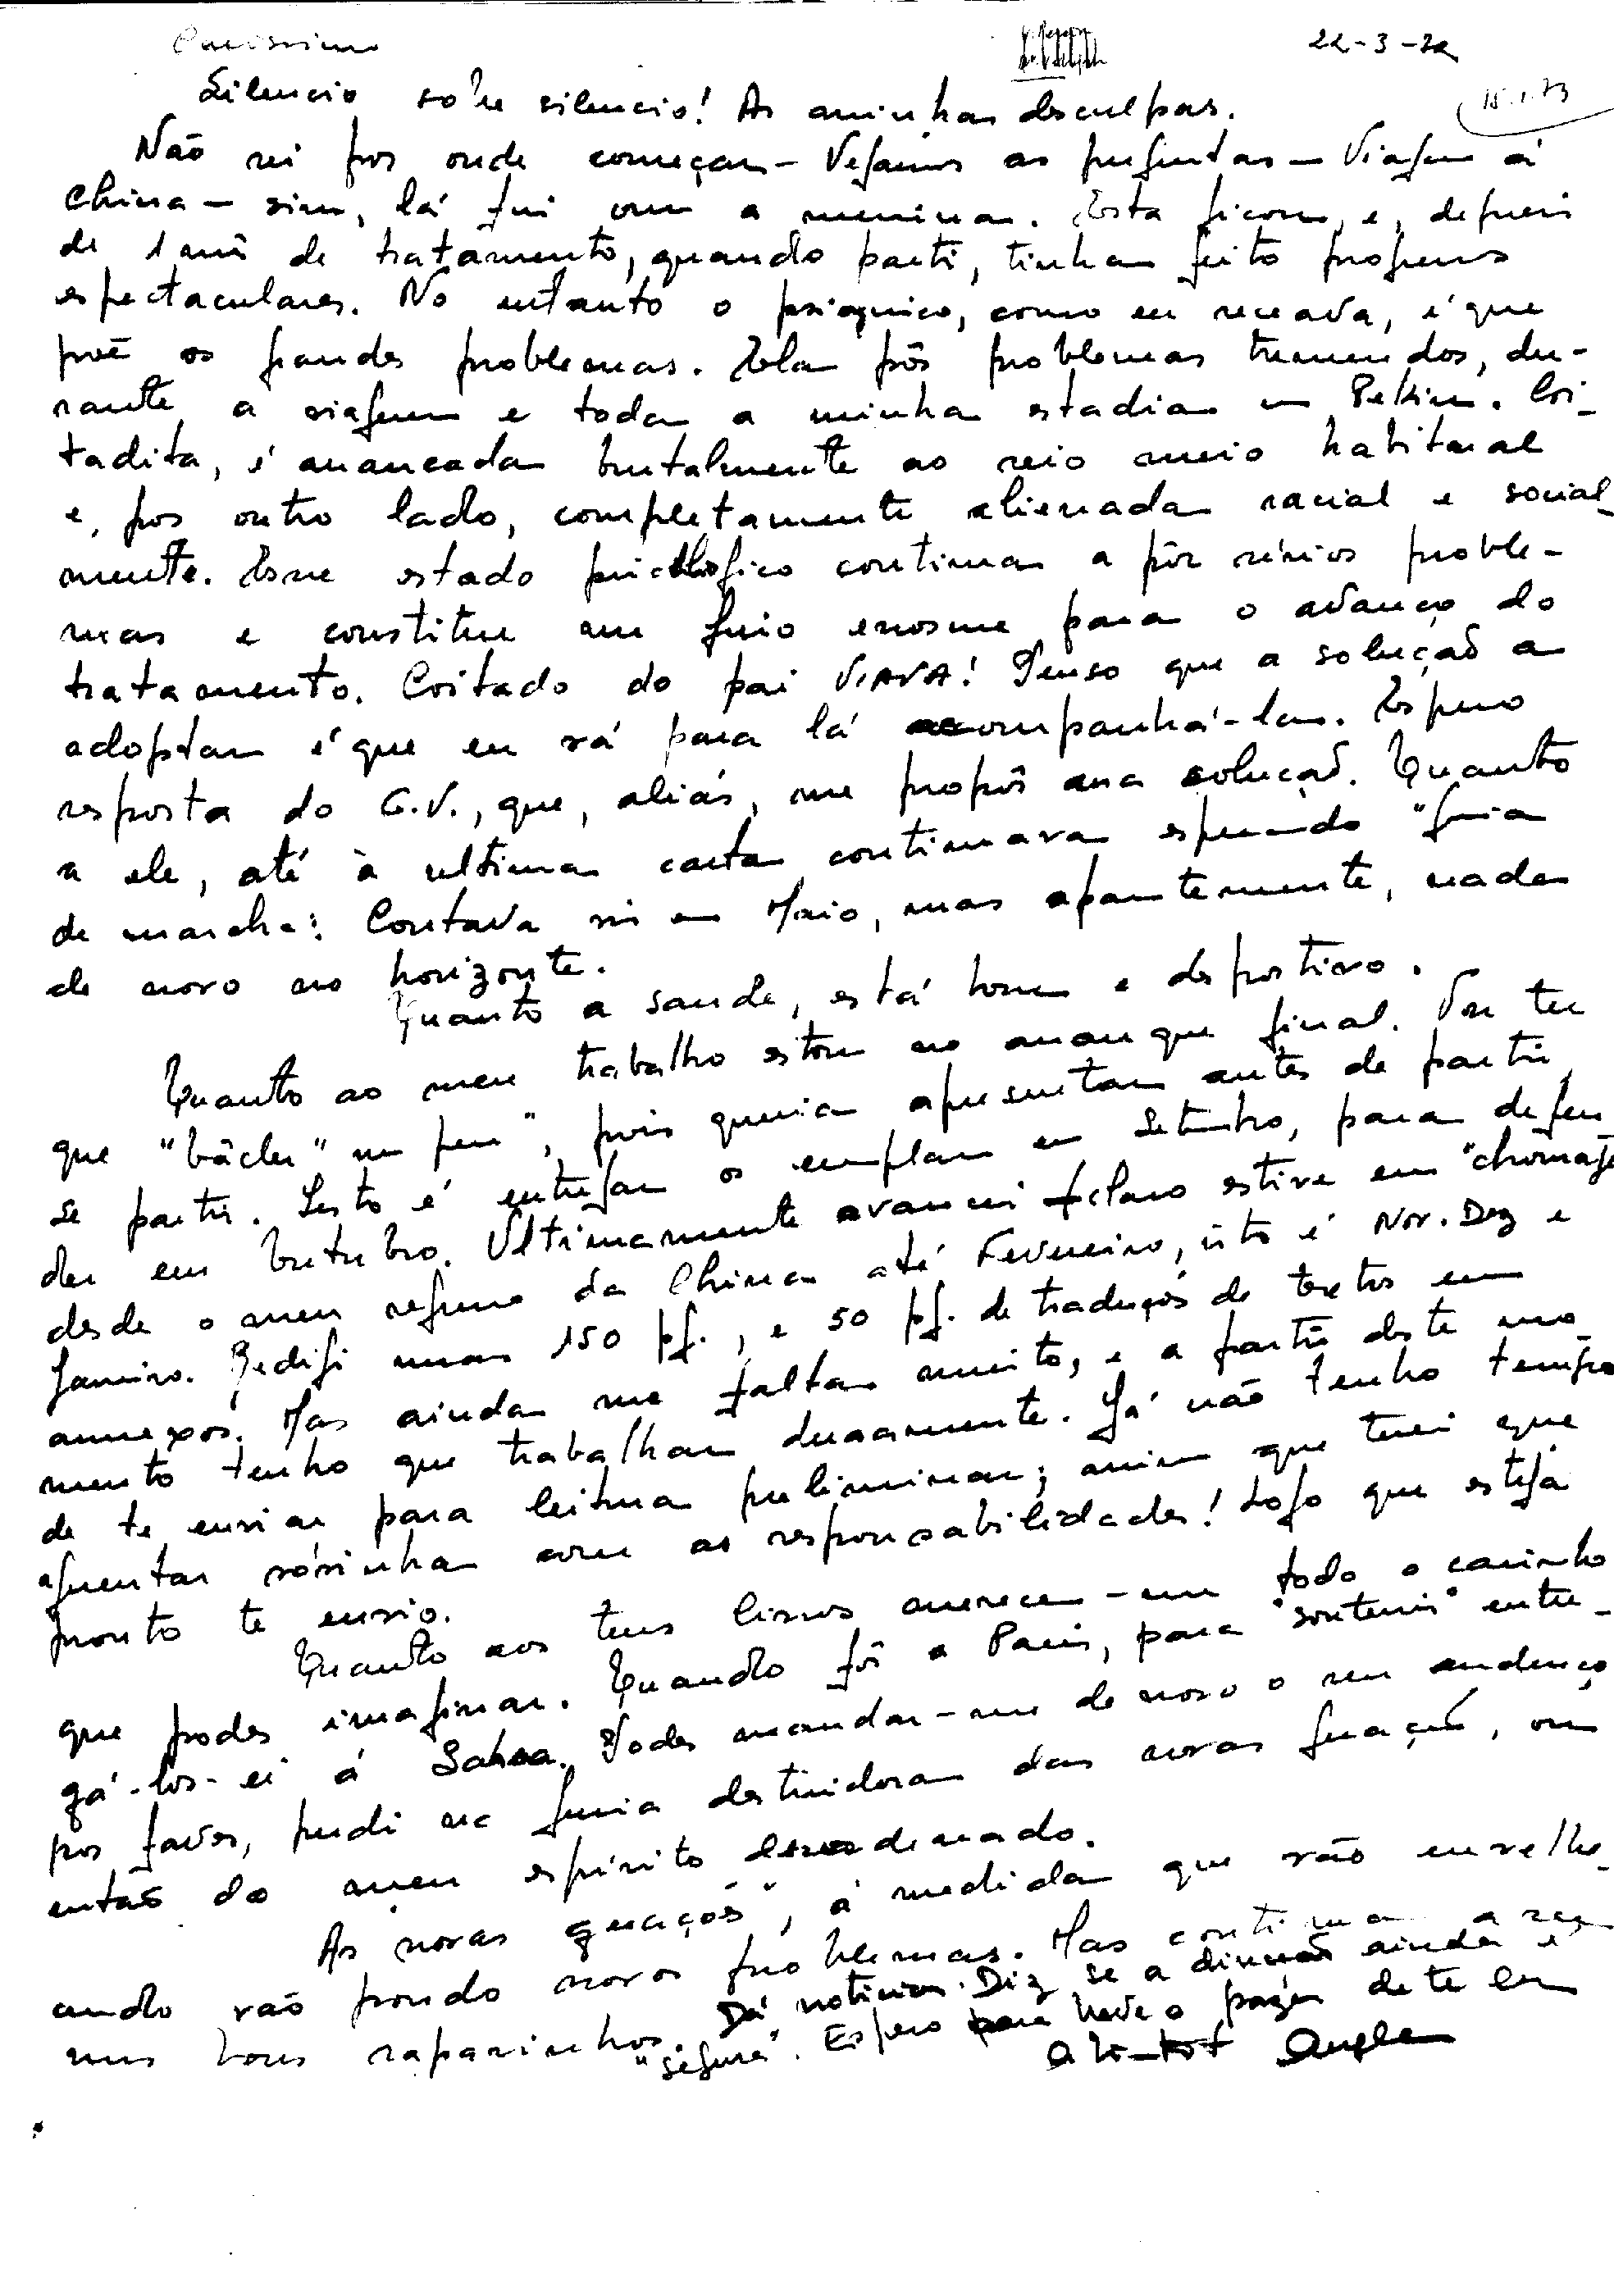 Carissimo 22-3-72
15.1.73
Silencio sobre silencio! As minhas desculpas.
Não sei por onde começar - Vejamos as perguntas - Viagem á
China - sim, lá fui com a menina. Esta ficou, e, depois
de 1 mês de tratamento, quando parti, tinha feito progressos
espectaculares. No entanto o psiquico, como eu receava, é que
põe os grandes problemas. Ela pôs problemas tremendos, du-
rante a viagem e toda a minha estadia em Pekin. Coi-
tadita, é arrancada brutalmente ao seio meio habitual
e, por outro lado, completamente alienada racial e social-
mente. Esse estado psicológico continua a pôr sérios proble-
mas e constitue um freio enorme para o avanço do
tratamento. Coitado do pai VIANA! Penso que a solução a
adoptar é que eu vá para lá acompanhá-la. Espero
resposta do G.V., que, aliás, me propôs essa solução. Quanto
a ele, até à ultima carta continuava esperando "guia
de marcha". Contava vir em Maio, mas aparentemente, nada
de novo no horizonte.
Quanto a saude, está bom e desportivo.
Quanto ao meu trabalho estou no arranque final. Vou ter
que "bâcler" um peu", pois queria apresentar antes de partir,
se partir. Isto é entregar os exemplares em Setembro, para defen
der em Outubro. Ultimamente avancei claro estive em "chomage
desde o meu regresso da China até Fevereiro, isto é Nov. Dez e
Janeiro. Redigi umas 150 pg., e 50 pg. de traduções de textos em
annexos. Mas ainda me falta muito, e a partir deste mo-
mento tenho que trabalhar duramente. Já não tenho tempo
de te enviar para leitura preliminar; assim que terei que
aguentar sósinha com as responsabilidades! Logo que esteja
pronto te envio.
Quanto aos teus livros merecem-me todo o carinho
que podes imaginar. Quando fôr a Paris, para "soutenir" entre-
gá-los-ei á Sahsa. Podes mandar-me de novo o seu endereço
por favor, perdi na furia destruidora das novas geraçoés, ou
então do meu espirito desordenado.
As novas geraçoés", á medida que vão envelhe-
cendo vão pondo novos problemas. Mas continuam a ser
uns bons rapazinhos. Dá noticias. Diz se a direcção ainda é
"segura". Espero para breve o prazer de te ler
a bientot Angela